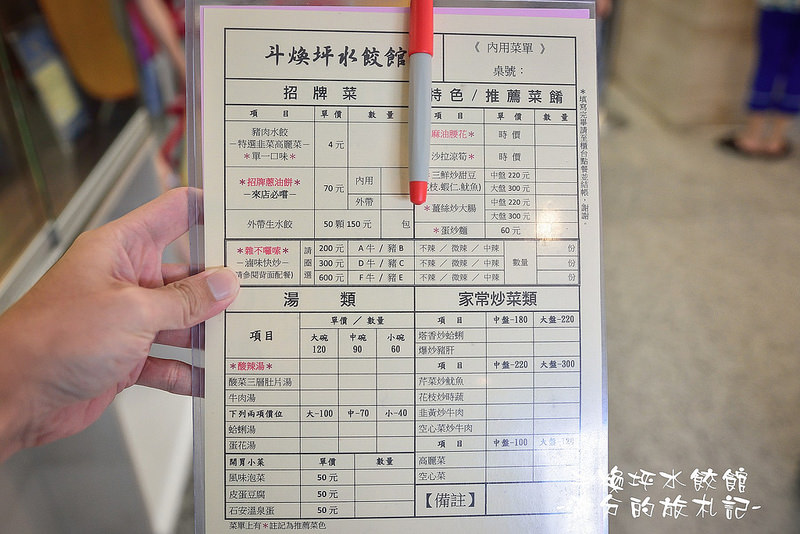 斗煥坪水餃館
《 內用菜單 》
桌號：
招牌菜
特色/推薦菜餚
項 目 單價 數量
項 目 單價 數量
豬肉水餃
－特選韭菜高麗菜－
＊單一口味＊
4 元
＊招牌蔥油餅＊
－來店必嚐－
70 元
內用
外帶
外帶生水餃
50 顆 150 元
包
麻油腰花＊
時價
沙拉涼筍＊
時價
三鮮炒甜豆
花枝.蝦仁.魷魚)
中盤 220 元
大盤 300 元
＊薑絲炒大腸
中盤 220 元
大盤 300 元
＊蛋炒麵
60 元
＊填寫完畢請至櫃台點餐並結帳，謝謝。
＊雜不囉嗦＊
－滷味快炒－
請參閱背面配餐)
請圈選
200 元 A 牛 / 豬 B 不辣 ／ 微辣 ／ 中辣
300 元 D 牛 / 豬 C 不辣 ／ 微辣 ／ 中辣
600 元 F 牛 / 豬 E 不辣 ／ 微辣 ／ 中辣
數量
份
份
份
湯 類
項目
單價 ／ 數量
大碗 120
中碗 90
小碗 60
＊酸辣湯＊
酸菜三層肚片湯
牛肉湯
下列兩項價位 大-100 中-70 小-40
蛤蜊湯
蛋花湯
開胃小菜 單價 數量
風味泡菜 50 元
皮蛋豆腐 50 元
石安溫泉蛋 50 元
菜單上有＊註記為推薦菜色
家常炒菜類
項 目 中盤-180 大盤-220
塔香炒蛤蜊
爆炒豬肝
項 目 中盤-220 大盤-300
芹菜炒魷魚
花枝炒時蔬
韭黃炒牛肉
空心菜炒牛肉
項 目 中盤-100 大盤
高麗菜
空心菜
【備註】
煥坪水餃館
的旅札記-